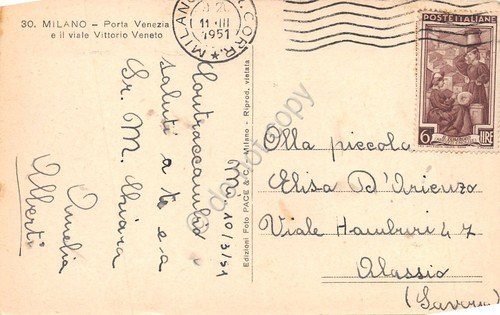 30. MILANO - Porta Venezia
e il viale Vittorio Veneto
MILANO
CORR.
11·III
1951
POSTE ITALIANE
6 LIRE
Mi 10/3/51
Contraccambio
saluti a te e a
Sr. M. Chiara
Amelia
Alberti
Edizioni Foto PACE & C. - Milano - Riprod. vietata
do not copy
Alla piccola
Elisa D'Arienzo
Viale Hamburi 47
Alassio
(Savona)